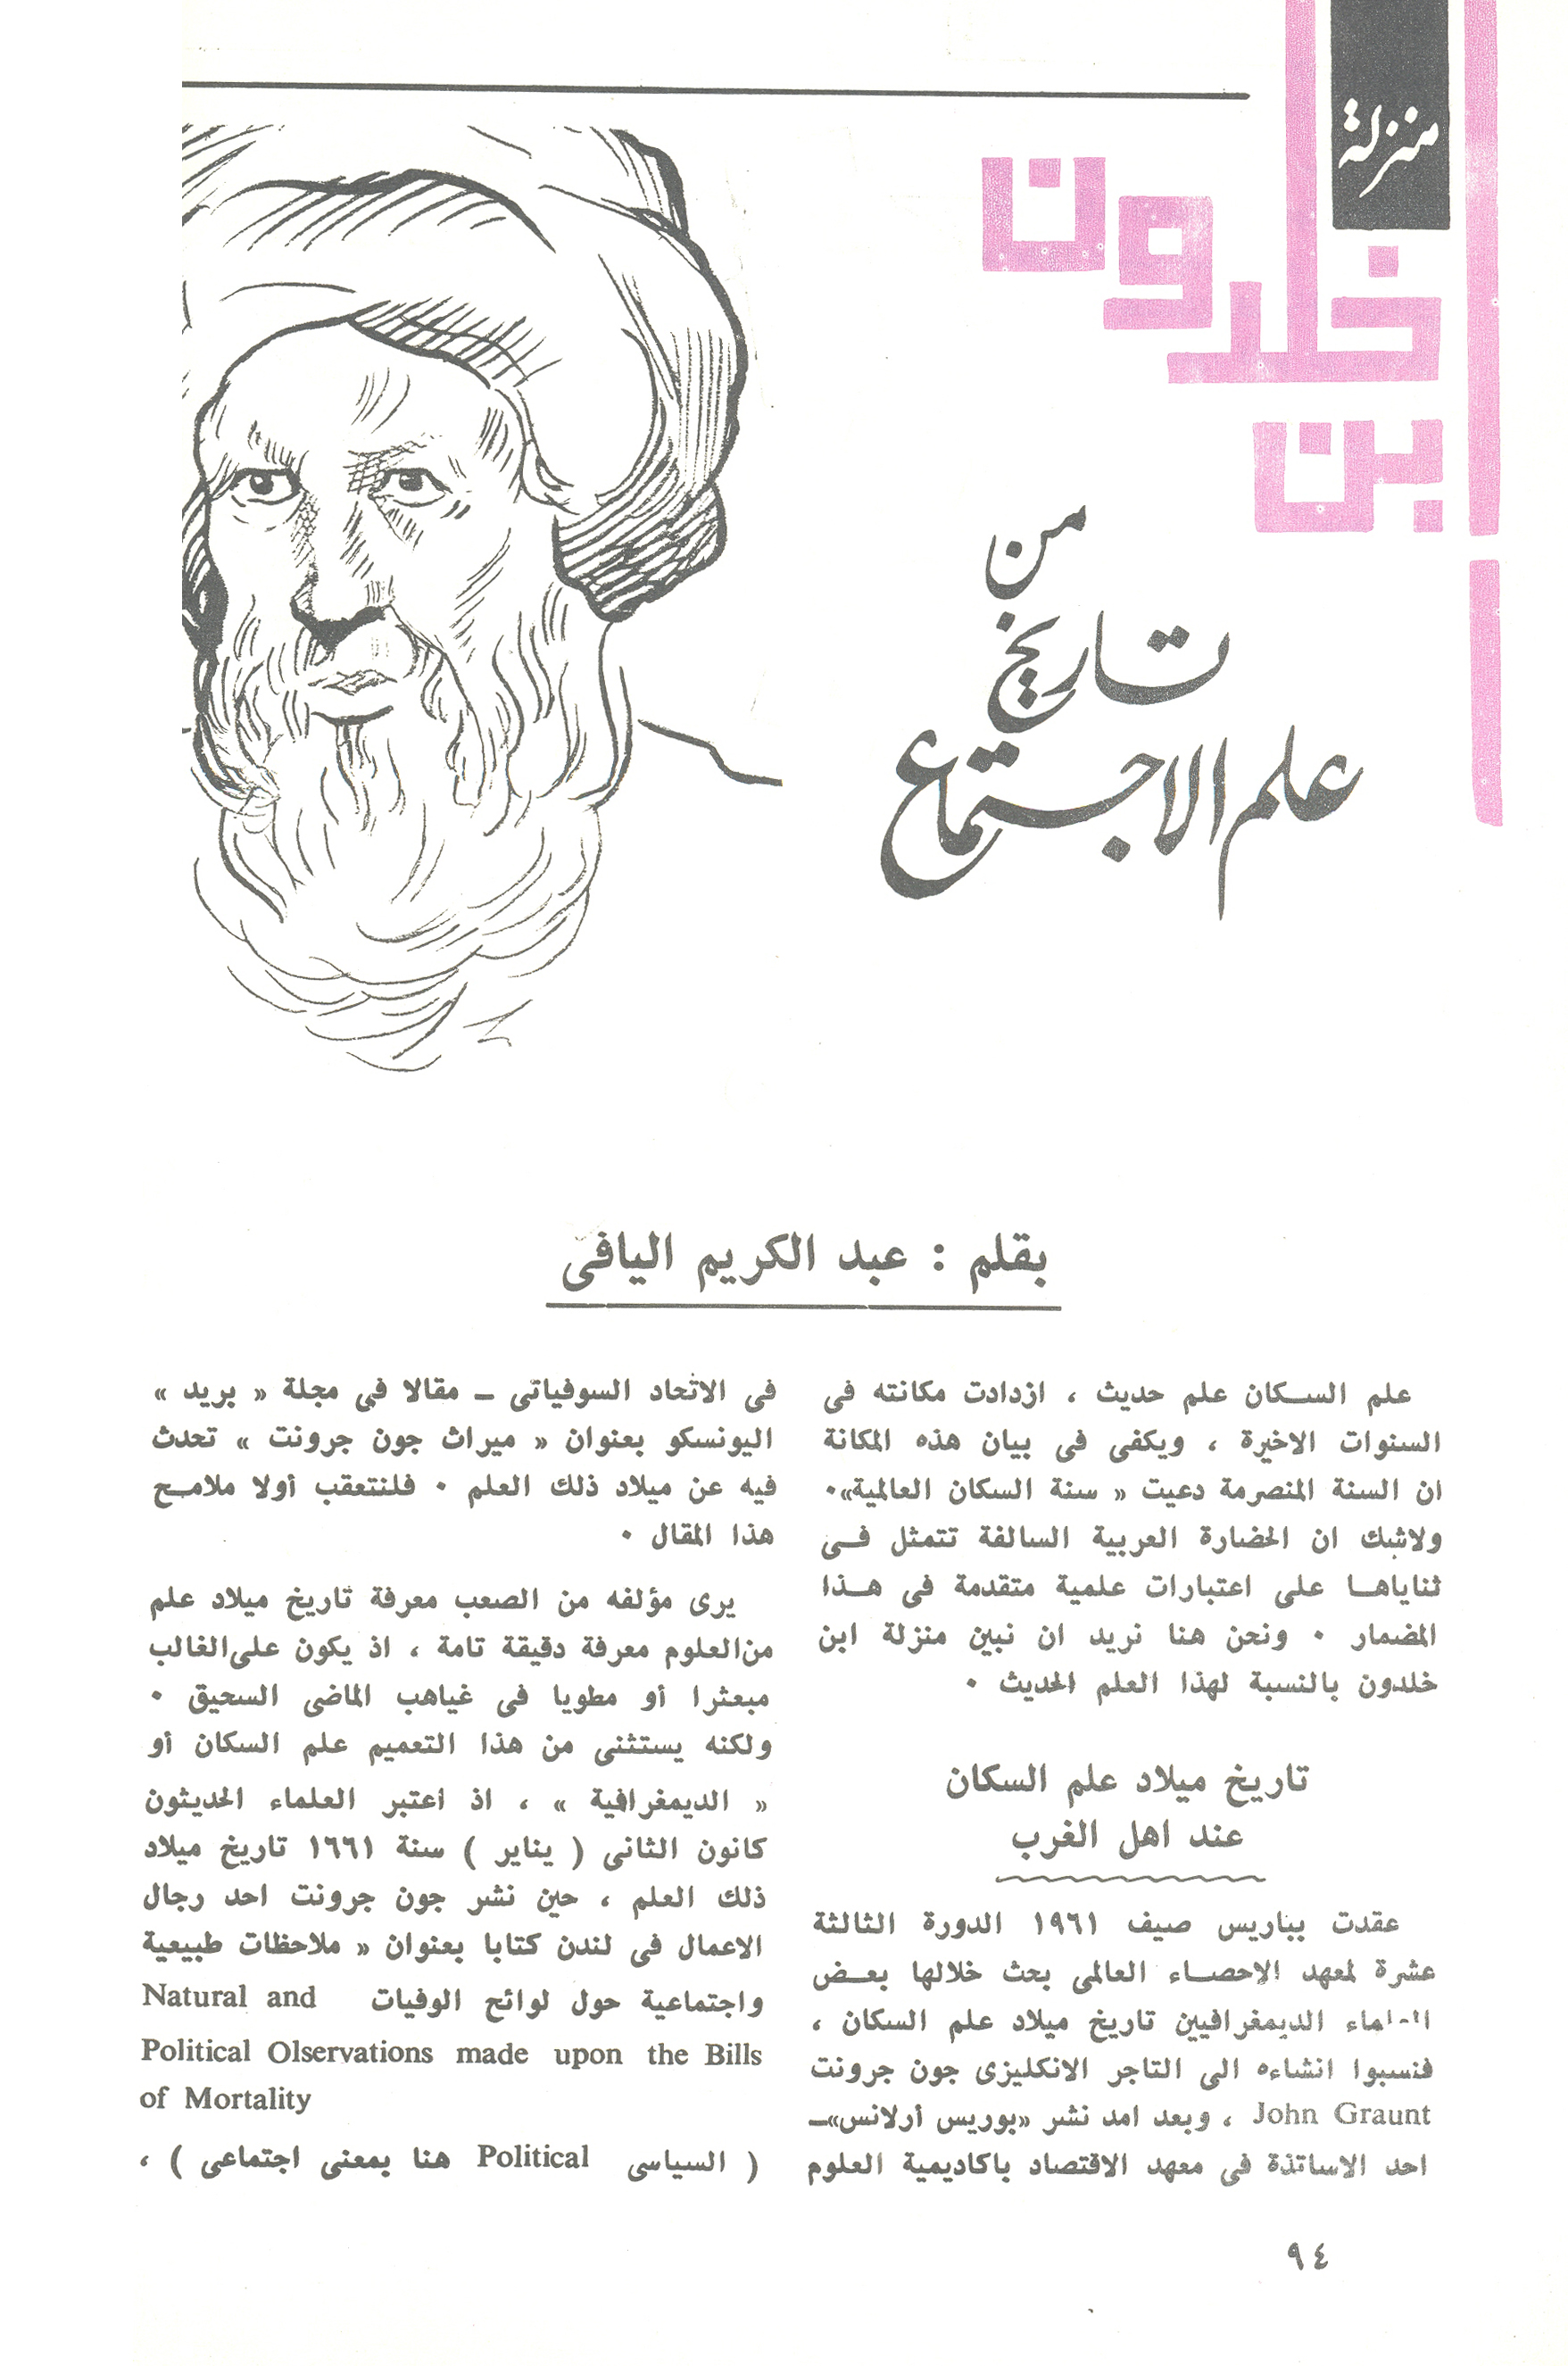 منزلة
ابن
خلدون
من
تاريخ
علم الاجتماع
بقلم : عبد الكريم اليافى
علم السكان علم حديث ، ازدادت مكانته فى
السنوات الاخيرة ، ويكفى فى بيان هذه المكانة
ان السنة المنصرمة دعيت « سنة السكان العالمية»٠
ولاشك ان الحضارة العربية السالفة تتمثل فى
ثناياها على اعتبارات علمية متقدمة فى هذا
المضمار ٠ ونحن هنا نريد ان نبين منزلة ابن
خلدون بالنسبة لهذا العلم الحديث ٠
تاريخ ميلاد علم السكان
عند اهل الغرب
عقدت بباريس صيف ١٩٦١ الدورة الثالثة
عشرة لمعهد الاحصاء العالمى بحث خلالها بعض
العلماء الديمغرافيين تاريخ ميلاد علم السكان ،
فنسبوا انشاءه الى التاجر الانكليزى جون جرونت
John Graunt ، وبعد امد نشر «بوريس أرلانس»ـ
احد الاساتذة فى معهد الاقتصاد باكاديمية العلوم
فى الاتحاد السوفياتى ـ مقالا في مجلة « بريد »
اليونسكو بعنوان « ميراث جون جرونت » تحدث
فيه عن ميلاد ذلك العلم ٠ فلنتعقب أولا ملامح
هذا المقال ٠
يرى مؤلفه من الصعب معرفة تاريخ ميلاد علم
من العلوم معرفة دقيقة تامة ، اذ يكون على الغالب
مبعثرا أو مطويا فى غياهب الماضى السحيق ٠
ولكنه يستثنى من هذا التعميم علم السكان أو
« الديمغرافية » ، اذ اعتبر العلماء الحديثون
كانون الثانى ( يناير ) سنة ١٦٦١ تاريخ ميلاد
ذلك العلم ، حين نشر جون جرونت احد رجال
الاعمال فى لندن كتابا بعنوان « ملاحظات طبيعية
واجتماعية حول لوائح الوفيات Natural and
Political Olservations made upon the Bills
of Mortality
( السياسى Political هنا بمعنى اجتماعى ) ،
٩٤